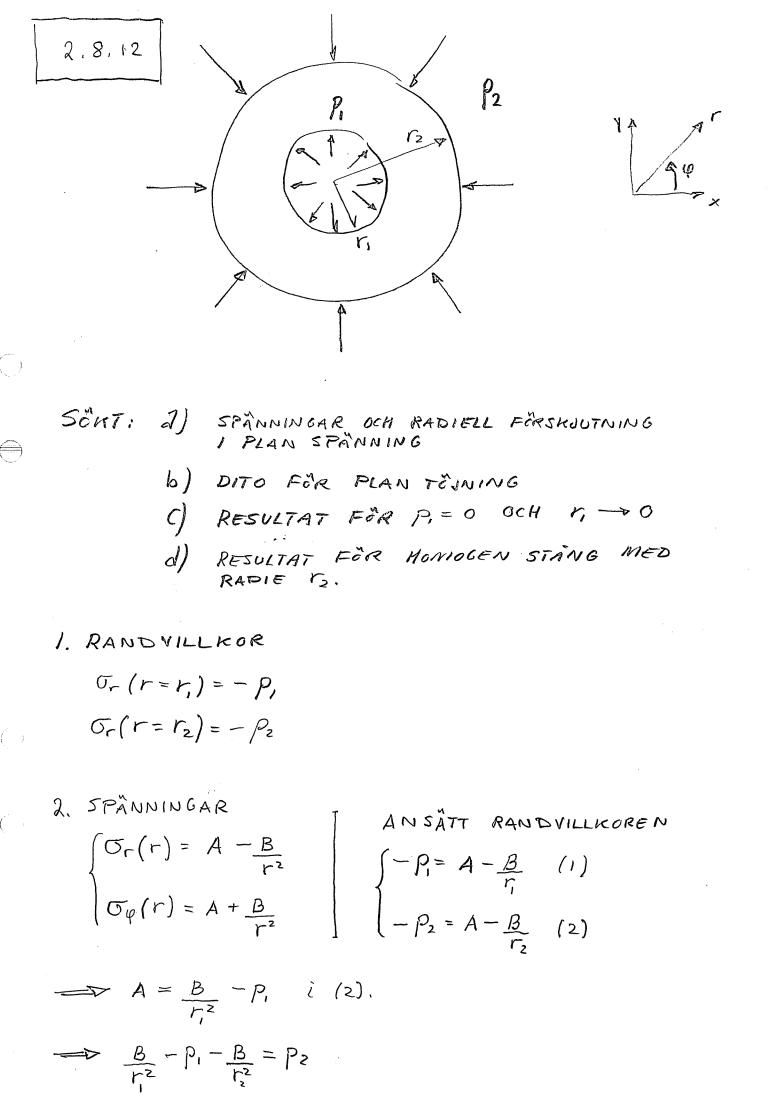 2.8.12
p₁
p₂
r₂
r₁
y
r
φ
x
SÖKT: a) SPÄNNINGAR OCH RADIELL FÖRSKJUTNING
I PLAN SPÄNNING
b) DITO FÖR PLAN TÖJNING
c) RESULTAT FÖR p₁ = 0 OCH r₁ → 0
d) RESULTAT FÖR HOMOGEN STÅNG MED
RADIE r₂.
1. RANDVILLKOR
σr (r = r₁) = - p₁
σr (r = r₂) = - p₂
2. SPÄNNINGAR
σr(r) = A - B/r²
σφ(r) = A + B/r²
ANSÄTT RANDVILLKOREN
-p₁ = A - B/r₁ (1)
-p₂ = A - B/r₂ (2)
⟹ A = B/r₁² - p₁ i (2).
⟹ B/r₁² - p₁ - B/r₂² = p₂